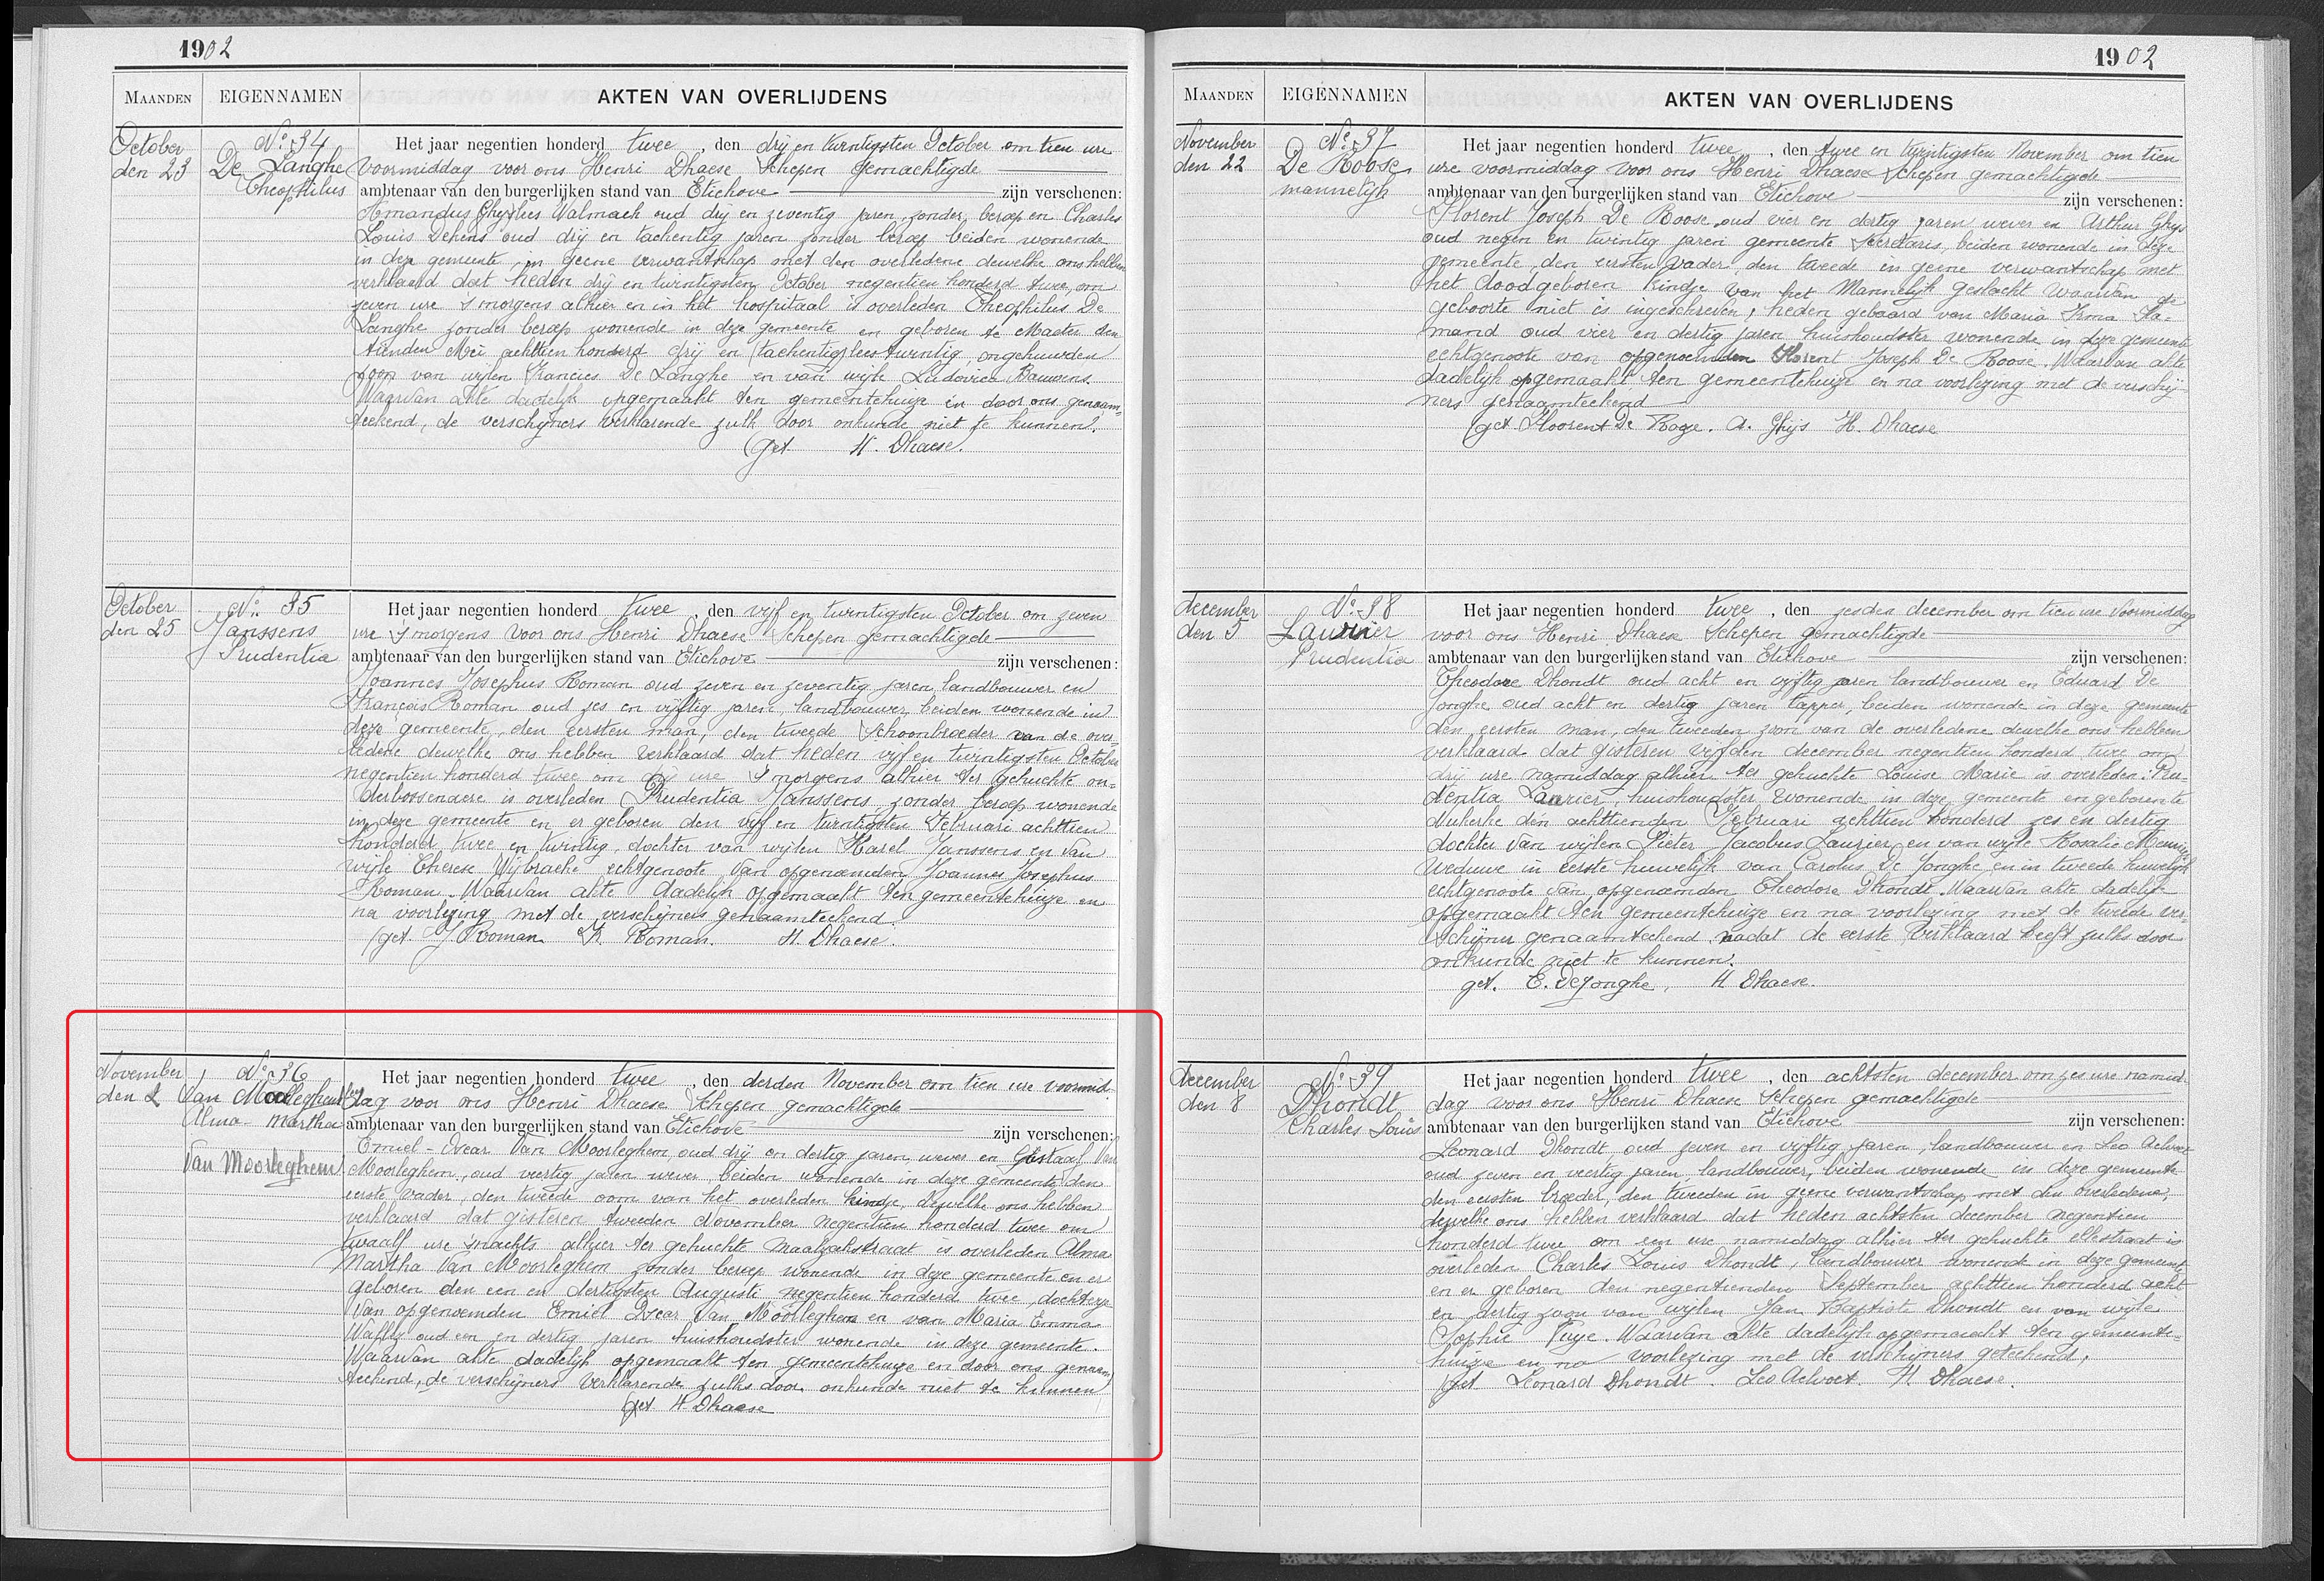 1902
MAANDEN
EIGENNAMEN
AKTEN VAN OVERLIJDENS
October
den 23
No. 34
De Langhe
Theophilus
Het jaar negentien honderd twee, den drij en twintigsten October om tien ure
voormiddag voor ons Henri Dhaese Schepen gemachtigde
ambtenaar van den burgerlijken stand van Etichove zijn verschenen:
Amandus Ghyslies Walmach oud drij en zeventig jaren, zonder beroep en Charles
Louis Dehens oud drij en tachentig jaren zonder beroep beiden wonende
in deze gemeente, in geene verwantschap met den overledene dewelke ons hebben
verklaard dat heden drij en twintigsten October negentien honderd twee, om
zeven ure s'morgens alhier en in het hospitaal is overleden Theophilus De
Langhe zonder beroep wonende in deze gemeente en geboren te Maeter den
tienden Mei achttien honderd drij en (tachentig) lees twintig, ongehuwden
zoon van wijlen Francies De Langhe en van wijle Ludovica Bauwens.
Waarvan akte dadelijk opgemaakt ten gemeentehuize en door ons genaam-
teekend, de verschijners verklarende zulk door onkunde niet te kunnen.
(get. H. Dhaese.
October
den 25
No. 35
Janssens
Prudentia
Het jaar negentien honderd twee, den vijf en twintigsten October om zeven
ure s'morgens voor ons Henri Dhaese Schepen gemachtigde
ambtenaar van den burgerlijken stand van Etichove zijn verschenen:
Joannes Josephus Roman oud zeven en zeventig jaren, landbouwer en
François Roman oud zes en vijftig jaren, landbouwer, beiden wonende in
deze gemeente, den eersten man, den tweede Schoonbroeder van de over-
ledene dewelke ons hebben verklaard dat heden vijf en twintigsten October
negentien honderd twee om drij ure s'morgens alhier ter gehuchte on-
derbossenaere is overleden Prudentia Janssens zonder beroep wonende
in deze gemeente en er geboren den vijf en twintigsten Februari achttien
honderd twee en twintig, dochter van wijlen Karel Janssens en van
wijle Therese Wijbraeke echtgenoote van opgenoemden Joannes Josephus
Roman. Waarvan akte dadelijk opgemaakt ten gemeentehuize en
na voorlezing met de verschijners genaamteekend.
(get. J. Roman. F. Roman. H. Dhaese.
November
den 2
No. 36
Van Moorleghem
Alma Martha
Van Moorleghem
Het jaar negentien honderd twee, den derden November om tien ure voormid-
dag voor ons Henri Dhaese Schepen gemachtigde
ambtenaar van den burgerlijken stand van Etichove zijn verschenen:
Emiel-Oscar Van Moorleghem, oud drij en dertig jaren, wever en Gustaaf Van
Moorleghem, oud veertig jaren wever, beiden wonende in deze gemeente, den
eerste vader, den tweede oom van het overleden kindje, dewelke ons hebben
verklaard dat gisteren tweeden November negentien honderd twee om
twaalf ure s'nachts alhier ter gehuchte Maalzakstraat is overleden Alma
Martha Van Moorleghem zonder beroep wonende in deze gemeente en er
geboren den een en dertigsten Augusti negentien honderd twee, dochterje
van opgenoemden Emiel Oscar Van Moorleghem en van Maria Emma
Wally oud een en dertig jaren huishoudster wonende in deze gemeente.
Waarvan akte dadelijk opgemaakt ten gemeentehuize en door ons genaam-
teekend, de verschijners verklarende zulks door onkunde niet te kunnen
(get H. Dhaese
1902
MAANDEN
EIGENNAMEN
AKTEN VAN OVERLIJDENS
November
den 22
No. 37
De Roose
mannelijk
Het jaar negentien honderd twee, den twee en twintigsten November om tien
ure voormiddag voor ons Henri Dhaese Schepen gemachtigde
ambtenaar van den burgerlijken stand van Etichove zijn verschenen:
Florent Joseph De Roose, oud vier en dertig jaren wever en Arthur Ghijs
oud negen en twintig jaren gemeente Secretaris, beiden wonende in deze
gemeente, den eersten vader, den tweede in geene verwantschap met
het doodgeboren kindje van het Mannelijk geslacht waarvan de
geboorte niet is ingeschreven, heden gebaard van Maria Irma Sta-
mand oud vier en dertig jaren huishoudster wonende in deze gemeente
echtgenoote van opgenoemden Florent Joseph De Roose. Waarvan akte
dadelijk opgemaakt ten gemeentehuize en na voorlezing met de verschij-
ners genaamteekend
(get. Floorent De Roose. A. Ghijs H. Dhaese
december
den 5
No. 38
Laurier
Prudentia
Het jaar negentien honderd twee, den zesden december om tien ure voormiddag
voor ons Henri Dhaese Schepen gemachtigde
ambtenaar van den burgerlijken stand van Etichove zijn verschenen:
Theodore Dhondt oud acht en vijftig jaren landbouwer en Eduard De
Jonghe oud acht en dertig jaren tapper, beiden wonende in deze gemeente
den eersten man, den tweeden zoon van de overledene dewelke ons hebben
verklaard dat gisteren vijfden december negentien honderd twee om
drij ure namiddag alhier ter gehuchte Louise Marie is overleden: Pru-
dentia Laurier, huishoudster, wonende in deze gemeente en geboren te
Nukerke den achttienden Februari achttien honderd zes en dertig
dochter van wijlen Pieter Jacobus Laurier en van wijle Rosalie
Weduwe in eerste huwelijk van Carolus De Jonghe en in tweede huwelijk
echtgenoote van opgenoemden Theodore Dhondt. Waarvan akte dadelijk
opgemaakt ten gemeentehuize en na voorlezing met de tweede ver-
schijner genaamteekend, nadat de eerste verklaard heeft zulks door
onkunde niet te kunnen.
get. E. DeJonghe, H Dhaese.
december
den 8
No. 39
Dhondt
Charles Louis
Het jaar negentien honderd twee, den achtsten december om zes ure namid-
dag voor ons Henri Dhaese Schepen gemachtigde
ambtenaar van den burgerlijken stand van Etichove zijn verschenen:
Leonard Dhondt, oud zeven en vijftig jaren, landbouwer en Leo Aelvoet
oud zeven en veertig jaren, landbouwer, beiden wonende in deze gemeente
den eersten broeder, den tweeden in geene verwantschap met den overledene,
dewelke ons hebben verklaard dat heden achtsten december negentien
honderd twee om een ure namiddag alhier ter gehuchte ellestraat is
overleden Charles Louis Dhondt, landbouwer wonende in deze gemeente
en er geboren den negentienden September achttien honderd acht
en dertig zoon van wijlen Jan Baptiste Dhondt en van wijle
Sophie Tuye. Waarvan akte dadelijk opgemaakt ten gemeente-
huize en na voorlezing met de verschijners geteekend,
(get Leonard Dhondt. Leo Aelvoet. H. Dhaese.